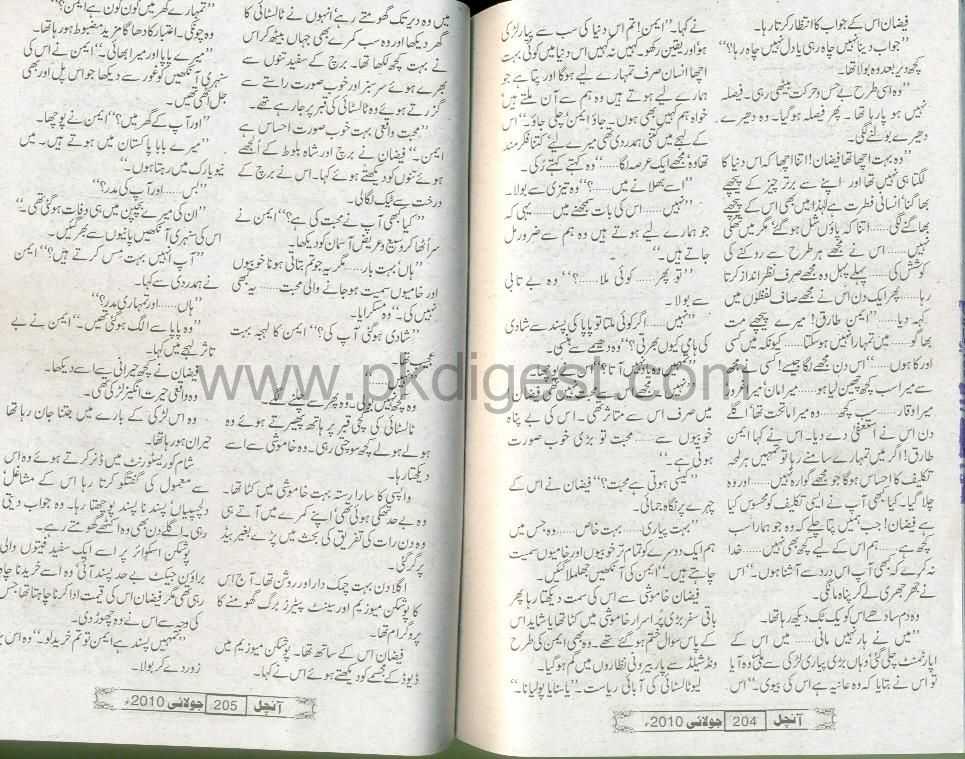 فیضان اس کے جواب کا انتظار کرتا رہا۔
”جواب دینا نہیں چاہ رہی یا دل نہیں چاہ رہا؟“
کچھ دیر بعد وہ بولا تھا۔
”وہ اسی طرح بے حس و حرکت بیٹھی رہی۔ فیصلہ
نہیں ہو پا رہا تھا۔ پھر فیصلہ ہو گیا۔ وہ دھیرے
دھیرے بولنے لگی۔
”وہ بہت اچھا تھا فیضان! اتنا اچھا کہ اس دنیا کا
لگتا ہی نہیں تھا اور اپنے سے برتر چیز کے پیچھے
بھاگنا انسانی فطرت ہے لہٰذا میں بھی اس کے پیچھے
بھاگنے لگی...... اتنا کہ پاؤں شل ہو گئے مگر میں تھکی
نہیں...... اس نے مجھے ہر طرح سے روکنے کی
کوشش کی...... پہلے پہل وہ مجھے صرف نظر انداز کرتا
رہا...... پھر ایک دن اس نے مجھے صاف لفظوں میں
کہہ دیا...... ”ایمن طارق! میرے پیچھے مت
بھاگو...... میں تمہارا نہیں ہو سکتا...... کیونکہ میں کسی
اور کا ہوں......“ اس دن مجھے لگا جیسے! کسی نے مجھ
سے میرا سب کچھ چھین لیا ہو...... میرا مان' میرا غرور'
میرا وقار...... سب کچھ...... وہ میرا ماتحت تھا' اگلے
دن اس نے استعفیٰ دے دیا۔ اس نے کہا ایمن
طارق! اگر میں تمہارے سامنے رہا تو تمہیں ہر لمحہ
تکلیف کا احساس ہو گا جو مجھے گوارہ نہیں...... اور وہ
چلا گیا۔ کیا کبھی آپ نے ایسی تکلیف کو محسوس کیا
ہے فیضان! جب ہمیں پتا چلے کہ وہ جو ہمارا سب
کچھ ہے...... ہم اس کے لیے کچھ بھی نہیں...... خدا
نہ کرے کہ کبھی آپ اس درد سے آشنا ہوں۔“ اس
نے جھرجھری لے کر پناہ مانگی۔
وہ دم سادھے اس کو یک ٹک دیکھ رہا تھا۔
”میں نے ہار نہیں مانی...... میں اس کے
اپارٹمنٹ چلی گئی وہاں بڑی پیاری لڑکی سے ملی' وہ آیا
تو اس نے بتایا کہ وہ عانیہ ہے اس کی بیوی۔“ اس
نے کہا۔ ”ایمن! تم اس دنیا کی سب سے پیاری لڑکی
ہو اور یقین رکھو۔ کہیں نہ کہیں اس دنیا میں کوئی بہت
اچھا انسان صرف تمہارے لیے ہو گا اور پتا ہے جو
ہمارے لیے ہوتے ہیں وہ ہم سے آن ملتے ہیں'
خواہ ہم کہیں بھی ہوں۔ جاؤ ایمن' چلی جاؤ۔“ اس
کے لہجے میں کتنی ہمدردی تھی میرے لیے' کتنا فکر مند
تھا وہ' مجھے ایک عرصہ لگا......“ وہ کہتے کہتے رکی۔
”اسے بھلانے میں......؟“ وہ تیزی سے بولا۔
”نہیں...... اس کی بات سمجھنے میں...... یہی کہ
جو ہمارے لیے ہوتے ہیں وہ ہم سے ضرور مل
جاتے ہیں۔“
”تو پھر...... کوئی ملا......؟“ وہ بے تابی
سے بولا۔
”نہیں...... اگر کوئی ملتا تو پاپا کی پسند سے شادی
کی ہامی کیوں بھرتی؟“ وہ دھیمے سے ہنسی۔
”تمہیں وہ یاد نہیں آتا؟“ اس نے پوچھا۔
میں صرف اس سے متاثر تھی۔ اس کی بے پناہ
خوبیوں سے...... محبت تو بڑی خوب صورت
ہوتی ہے۔“
”کیسی ہوتی ہے محبت؟“ فیضان نے اس کے
چہرے پر نگاہ جمائی۔
”بہت پیاری...... بہت خاص...... وہ جس میں
ہم ایک دوسرے کو تمام تر خوبیوں اور خامیوں سمیت
چاہتے ہیں۔“ ایمن کی آنکھیں جھلملا گئیں۔
فیضان خاموشی سے اس کی سمت دیکھتا رہا پھر
باقی سفر بڑی پُر اسرار خاموشی میں کٹا تھا یا شاید اس
کے پاس سوال ختم ہو گئے تھے۔ وہ بھی ایمن کی طرح
ونڈ شیلڈ سے پار بیرونی نظاروں میں گم ہو گیا۔
لیو ٹالسٹائی کی آبائی ریاست۔ ”یاسنایا پولیانا۔“
آنچل 204 جولائی 2010ء
میں وہ دیر تک گھومتے رہے' انہوں نے ٹالسٹائی کا
گھر دیکھا اور وہ سب کمرے بھی جہاں بیٹھ کر اس
نے بہت کچھ لکھا تھا۔ برچ کے سفید تنوں سے
بھرے ہوئے سرسبز اور خوب صورت راستے سے
گزرتے ہوئے وہ ٹالسٹائی کی قبر پر جا رہے تھے۔
”محبت واقعی بہت خوب صورت احساس ہے
ایمن۔“ فیضان نے برچ اور شاہ بلوط کے اُلجھے
ہوئے تنوں کو دیکھتے ہوئے کہا۔ اس نے برچ کے
درخت سے ٹیک لگا لی۔
”کیا کبھی آپ نے محبت کی ہے؟“ ایمن نے
سر اُٹھا کر وسیع و عریض آسمان کو دیکھا۔
”ہاں' بہت بار...... مگر یہ جو تم بتاتی ہو نا خوبیوں
اور خامیوں سمیت ہو جانے والی محبت...... یہ کبھی
نہیں کی۔“ وہ مسکرایا۔
”شادی ہو گئی آپ کی؟“ ایمن کا لہجہ بہت
عجیب تھا۔
”نہیں۔“
وہ کچھ نہیں بولی۔ وہ پھر سے چلنے لگے۔
ٹالسٹائی کی کچی قبر پر ہاتھ پھیرتے ہوئے وہ
ہولے ہولے کچھ سوچتی رہی۔ وہ خاموشی سے اسے
دیکھتا رہا۔
واپسی کا سارا رستہ بہت خاموشی میں کٹا تھا۔
وہ بے حد تھکی ہوئی تھی' اپنے کمرے میں آتے ہی
وہ دن رات کی تفریق کی بحث میں پڑے بغیر بیڈ
پر گر گئی۔
اگلا دن بہت چمک دار اور روشن تھا۔ آج اس
کا پوشکن میوزیم اور سینٹ پیٹرز برگ گھومنے کا
پروگرام تھا۔
فیضان اس کے ساتھ تھا۔ پوشکن میوزیم میں
ڈیوڈ کے مجسمے کو دیکھتے ہوئے اس نے کہا۔
”تمہارے گھر میں کون کون ہے ایمن؟“
وہ چونکی۔ اعتبار کا دھاگا مزید مضبوط ہو رہا تھا۔
”میرے پاپا اور میرا بھائی۔“ ایمن نے اس کی
سنہری آنکھیں کو غور سے دیکھا جو اس پل اور بھی
جل اٹھی تھیں۔
”اور آپ کے گھر میں؟“ ایمن نے پوچھا۔
”میرے بابا پاکستان میں ہوتے ہیں۔ میں
نیویارک میں رہتا ہوں۔“
”بس...... اور آپ کی مدر؟“
”ان کی میرے بچپن میں ہی وفات ہو گئی تھی۔“
اس کی سنہری آنکھیں پانیوں سے بھر گئیں۔
”آپ انہیں بہت مِس کرتے ہیں؟“ ایمن
نے ہمدردی سے کہا۔
”ہاں...... اور تمہاری مدر؟“
”وہ پاپا سے الگ ہو گئی تھیں۔“ ایمن نے بے
تاثر لہجے میں کہا۔
فیضان نے کچھ حیرانی سے اسے دیکھا۔
وہ واقعی حیرت انگیز لڑکی تھی۔
وہ اس لڑکی کے بارے میں جتنا جان رہا تھا
حیران ہو رہا تھا۔
شام کو ریسٹورنٹ میں ڈنر کرتے ہوئے وہ اس
سے معمول کی گفتگو کرتا رہا اس کے مشاغل'
دلچسپیاں' پسند نا پسند پوچھتا رہا۔ وہ جواب دیتی
رہی۔ اگلے دن بھی وہ اکٹھے گھومتے رہے۔
پوشکن اسکوائر پر اسے ایک سفید فیتوں والی
براؤن جیکٹ بے حد پسند آئی' وہ اسے خریدنا چاہ
رہی تھی مگر فیضان اس کی قیمت ادا کرنا چاہتا تھا' جس
کی وجہ سے اس نے وہ چھوڑ دی۔
”تمہیں پسند ہے ایمن تو تم خرید لو۔“ وہ اس پر
زور دے کر بولا۔
آنچل 205 جولائی 2010ء
www.pkdigest.com